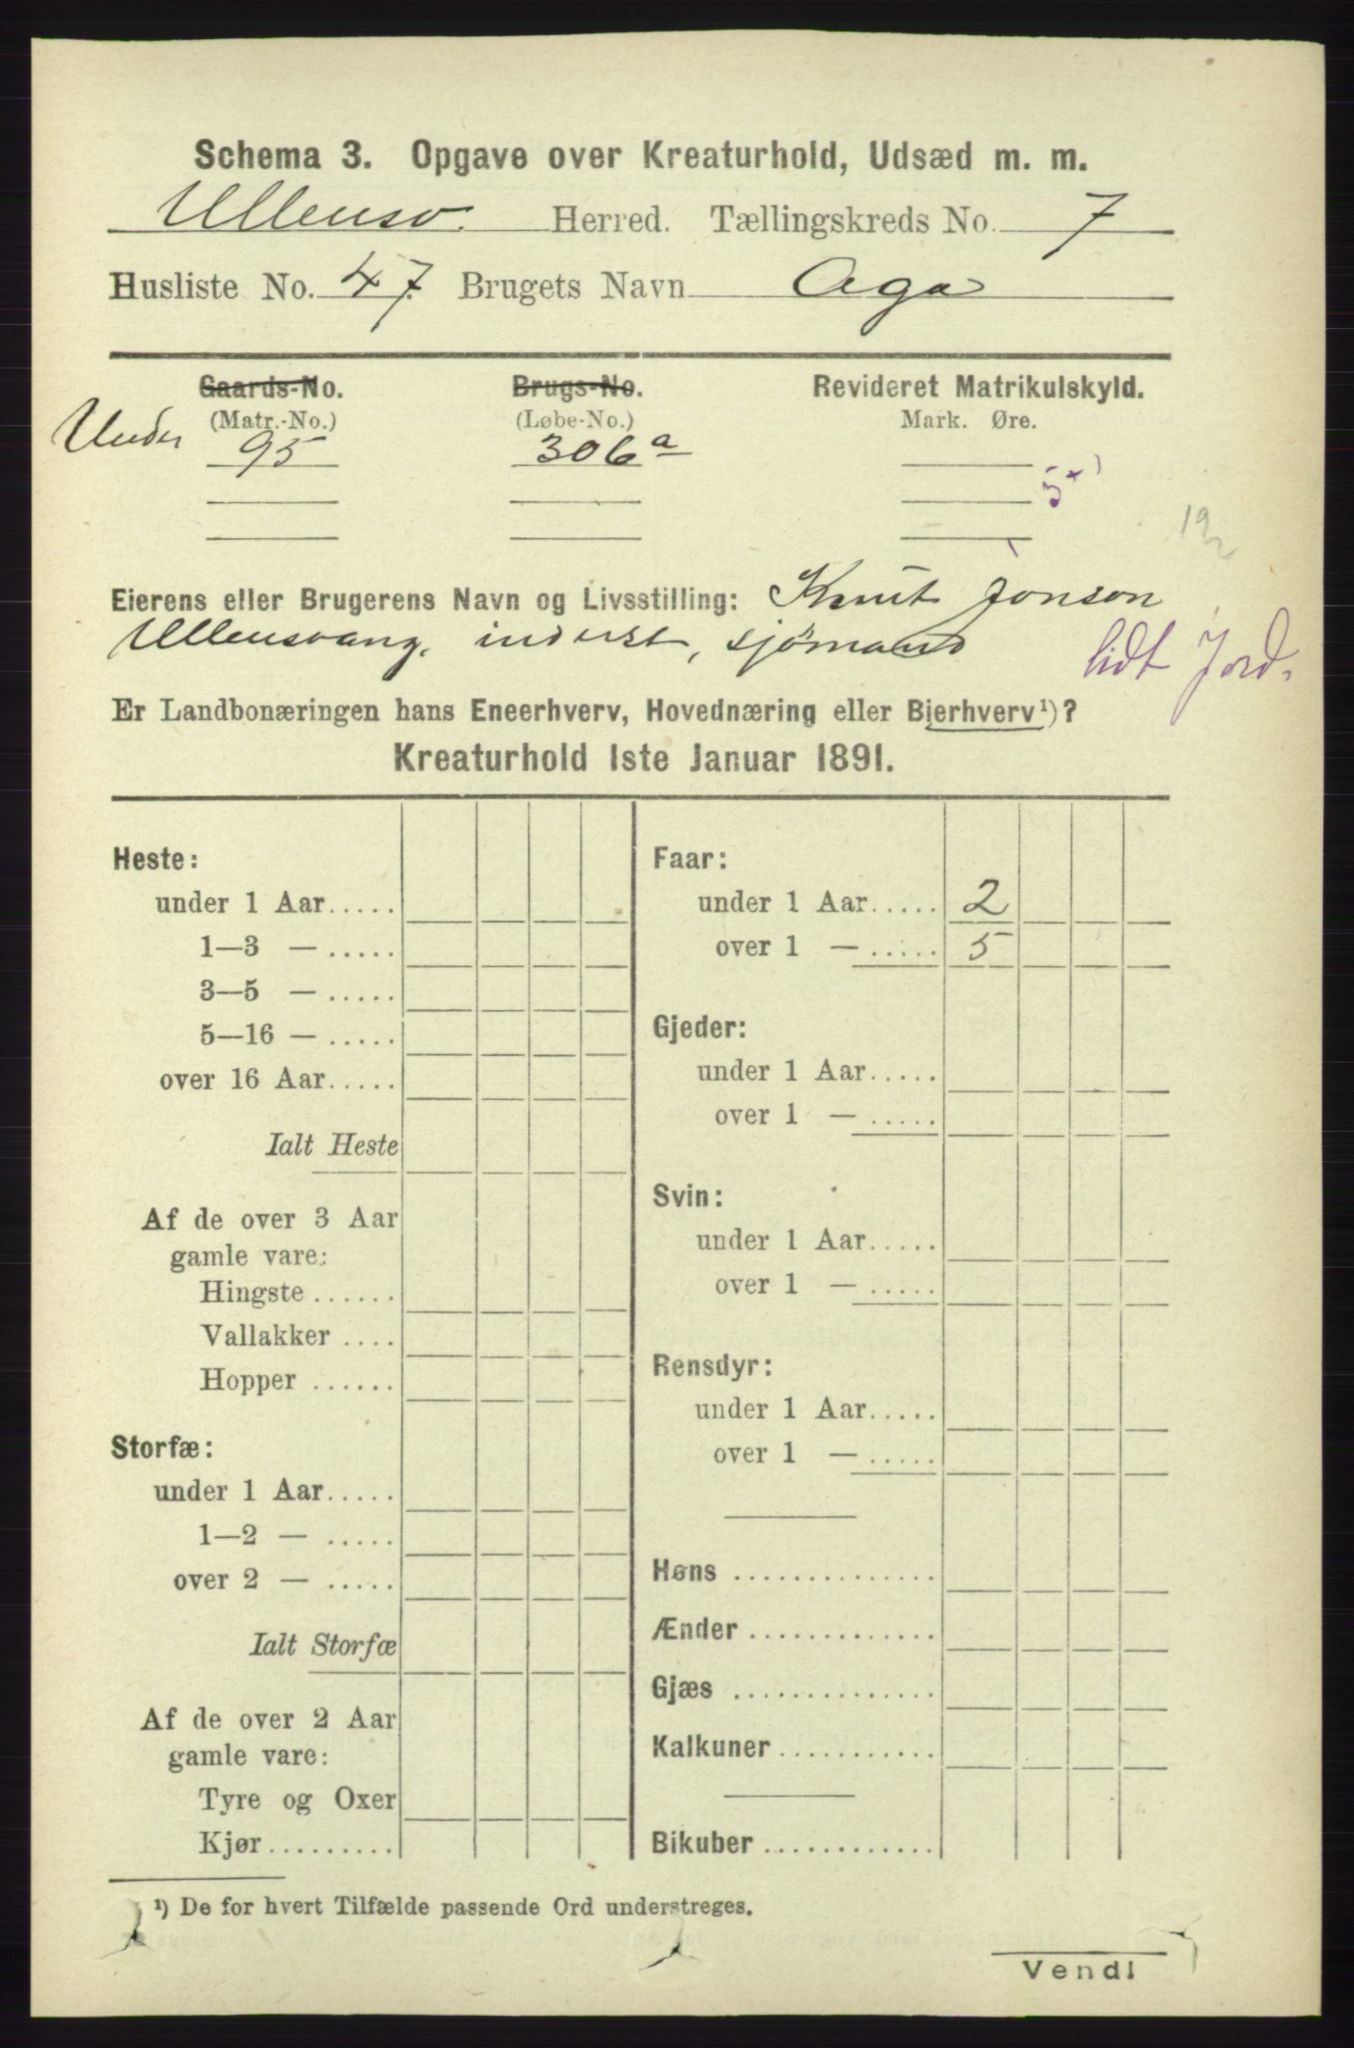 Schema 3. Opgave over Kreaturhold, Udsæd m. m.
Ullensv. Herred. Tællingskreds No. 7
Husliste No. 47 Brugets Navn Aga
Gaards-No. Brugs-No. Revideret Matrikulskyld.
(Matr.-No.) (Løbe-No.) Mark. Øre.
Under 95 306a
5
Eierens eller Brugerens Navn og Livsstilling: Knut Jonson
Ullensvang, inderst, sjømand
lidt Jord.
Er Landbonæringen hans Eneerhverv, Hovednæring eller Bierhverv¹)?
Kreaturhold 1ste Januar 1891.
Heste:
under 1 Aar.....
1—3 — .....
3—5 — .....
5—16 — .....
over 16 Aar.....
Ialt Heste
Af de over 3 Aar
gamle vare:
Hingste ......
Vallakker ....
Hopper ......
Storfæ:
under 1 Aar.....
1—2 — .....
over 2 — .....
Ialt Storfæ
Af de over 2 Aar
gamle vare:
Tyre og Oxer
Kjør.........
Faar:
under 1 Aar..... 2
over 1 — ..... 5
Gjeder:
under 1 Aar.....
over 1 — .....
Svin:
under 1 Aar.....
over 1 — .....
Rensdyr:
under 1 Aar.....
over 1 — .....
Høns ..............
Ænder .............
Gjæs ..............
Kalkuner...........
Bikuber ............
¹) De for hvert Tilfælde passende Ord understreges.
Vend!